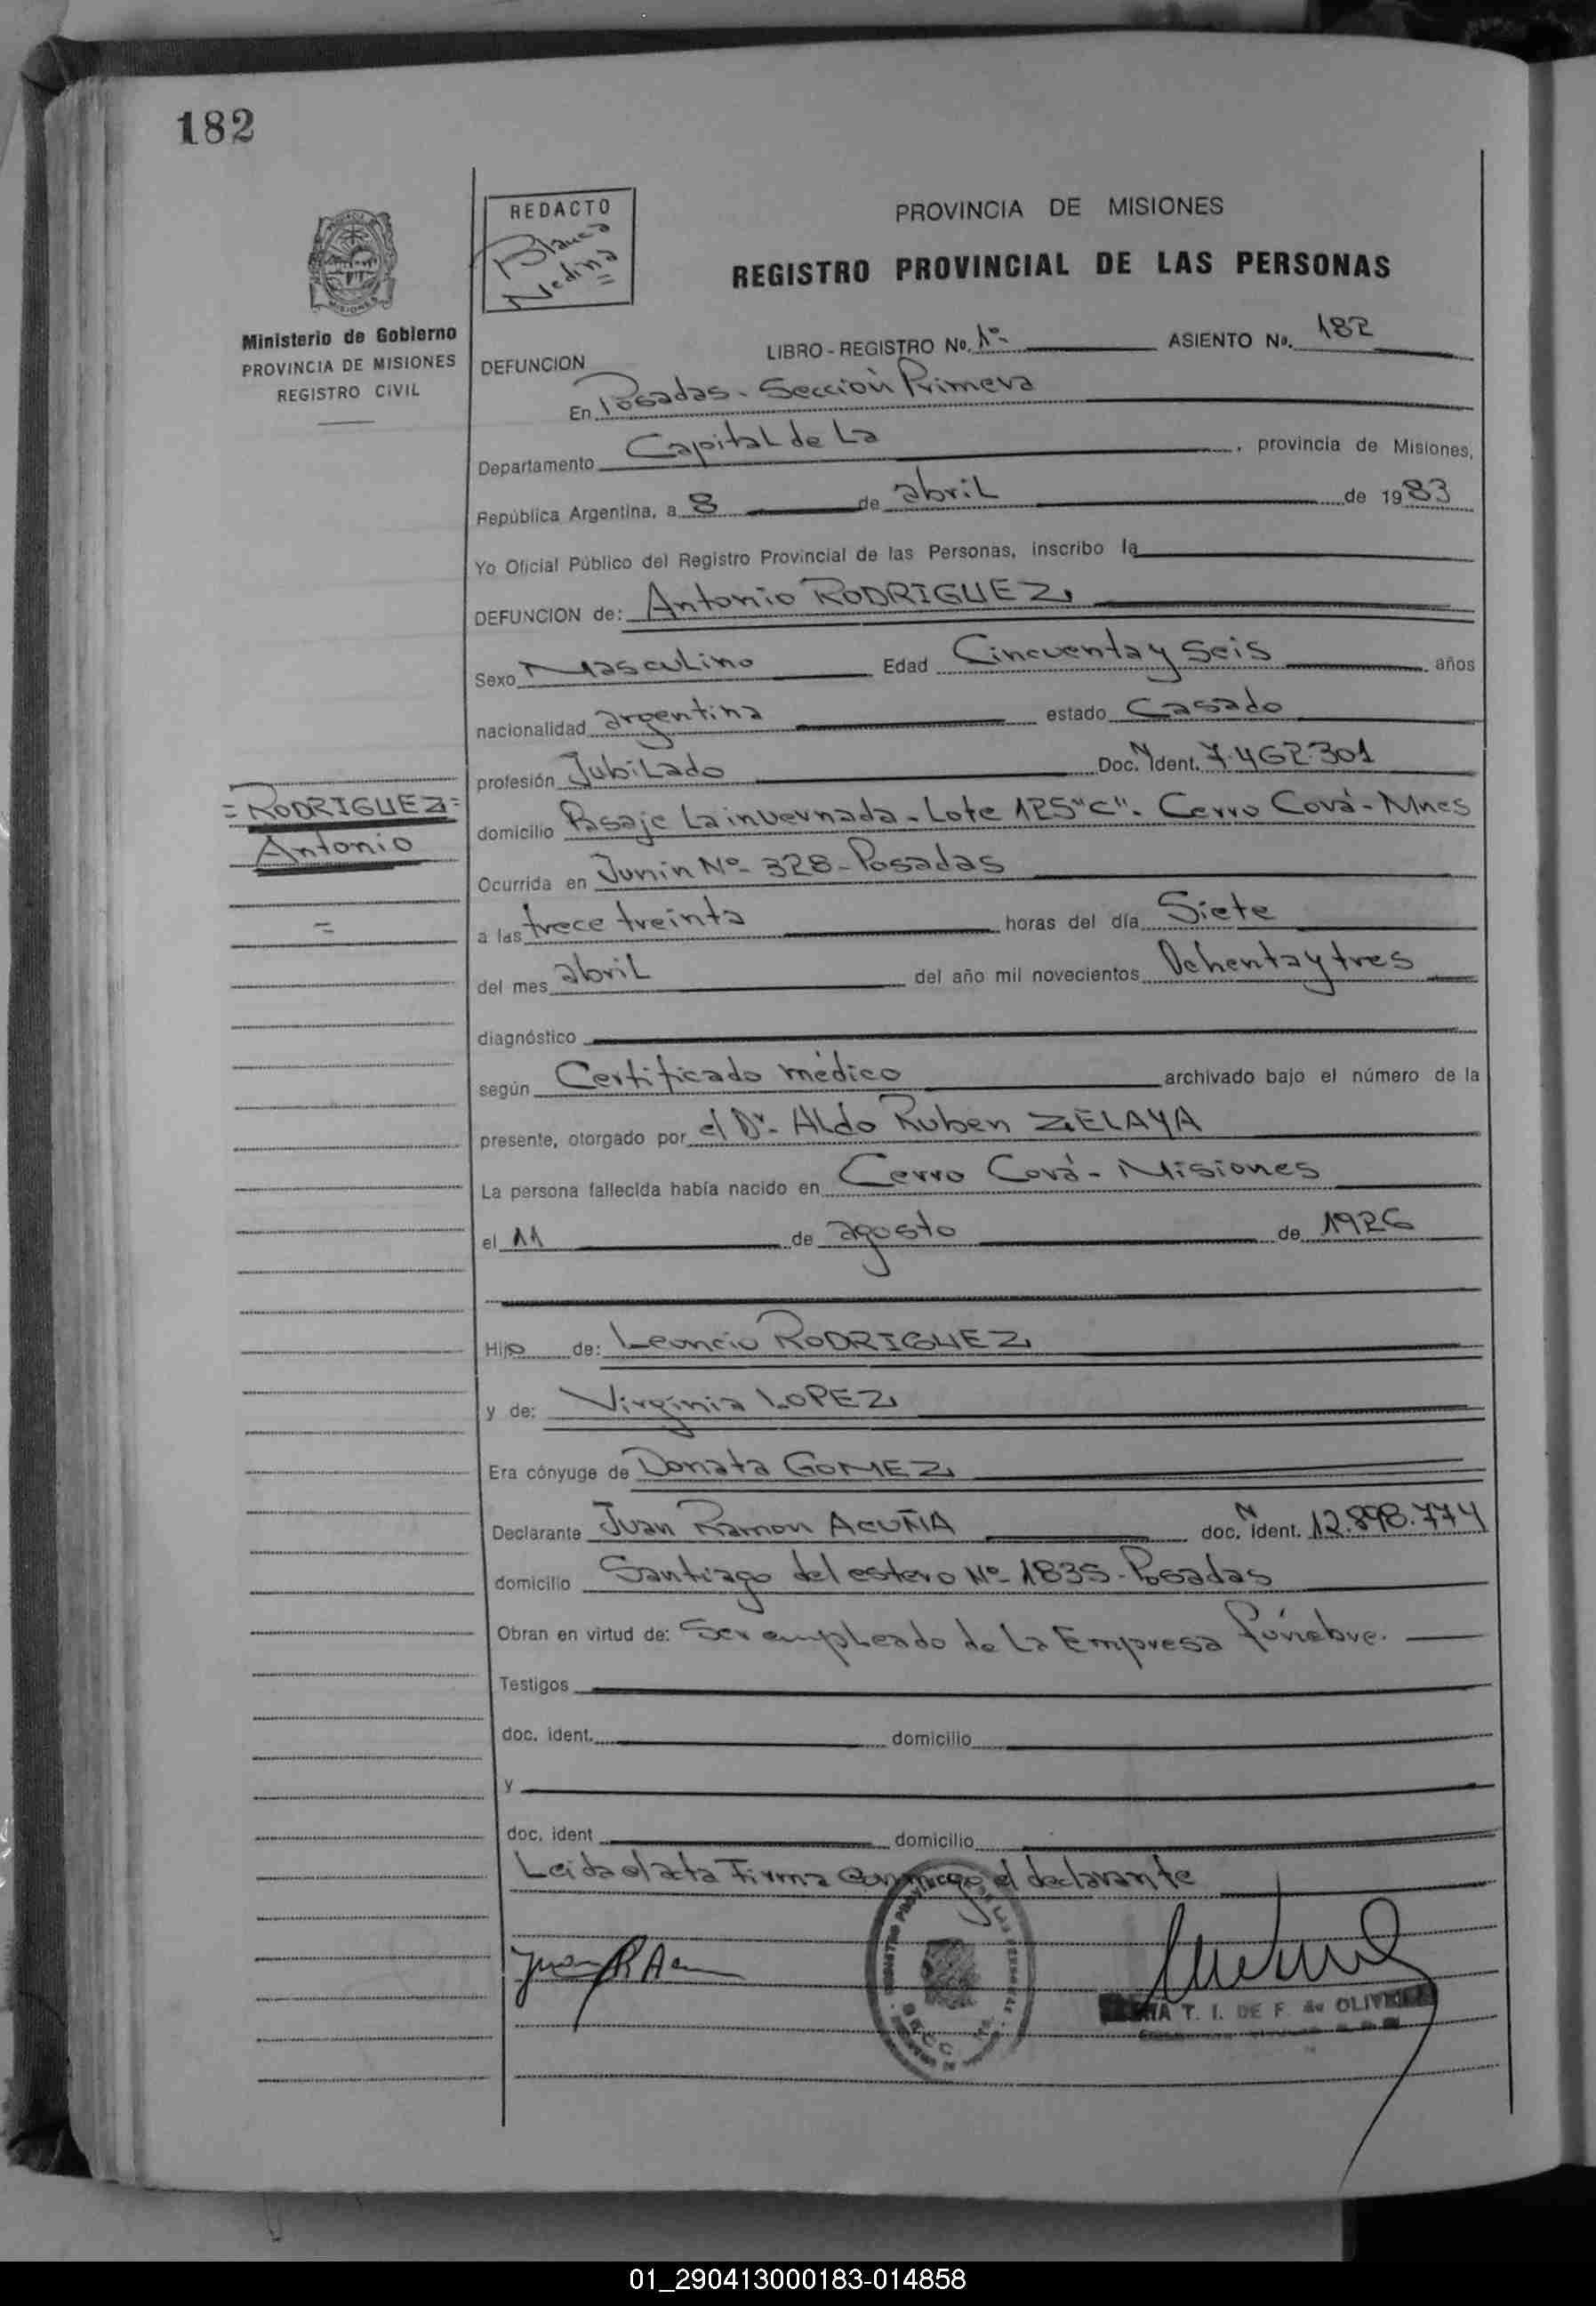 182
REDACTO
Blanca
Medina
=
Ministerio de Gobierno
PROVINCIA DE MISIONES
REGISTRO CIVIL
PROVINCIA DE MISIONES
REGISTRO PROVINCIAL DE LAS PERSONAS
LIBRO - REGISTRO No. 1º- ASIENTO No. 182
DEFUNCION
En Posadas. Sección Primera
Departamento Capital de La , provincia de Misiones,
República Argentina, a 8 de abril de 1983
Yo Oficial Público del Registro Provincial de las Personas, inscribo la
DEFUNCION de: Antonio RODRIGUEZ
Sexo Masculino Edad Cincuenta y Seis años
nacionalidad argentina estado Casado
profesión Jubilado Doc. N Ident. 7.462.301
= RODRIGUEZ =
Antonio
=
domicilio Pasaje La invernada - Lote 125 "C". Cerro Corá - Mnes
Ocurrida en Junin Nº- 328 - Posadas
a las trece treinta horas del día Siete
del mes abril del año mil novecientos Ochenta y tres
diagnóstico
según Certificado médico archivado bajo el número de la
presente, otorgado por el Dr- Aldo Ruben ZELAYA
La persona fallecida había nacido en Cerro Corá - Misiones
el 11 de agosto de 1926
Hijo de: Leoncio RODRIGUEZ
y de: Virginia LOPEZ
Era cónyuge de Donata GOMEZ
Declarante Juan Ramon ACUÑA doc. N ident. 12.898.774
domicilio Santiago del estero Nº- 1835 - Posadas
Obran en virtud de: Ser empleado de La Empresa fúnebre.
Testigos
doc. ident. domicilio
y
doc. ident domicilio
Leida el acta Firma conmigo el declarante
Juan R A
T. I. DE F. de OLIVEIRA
01_290413000183-014858